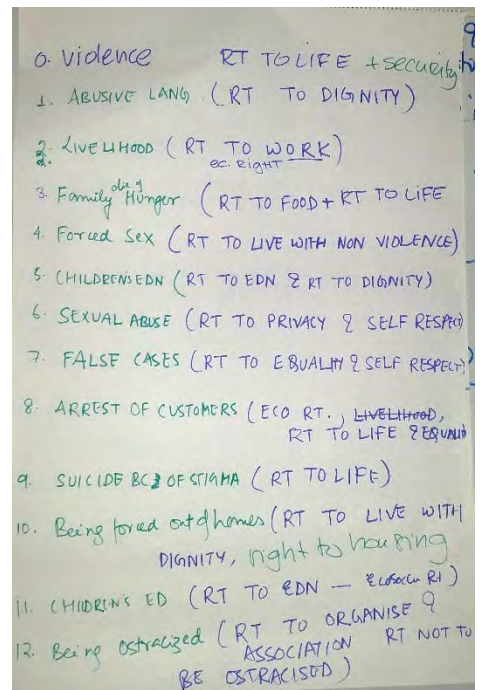 0. violence RT TO LIFE + security
1. ABUSIVE LANG. (RT TO DIGNITY)
2. LIVELIHOOD (RT TO WORK)
ec. RIGHT
3. Family die of Hunger (RT TO FOOD + RT TO LIFE
4. Forced Sex (RT TO LIVE WITH NON VIOLENCE)
5. CHILDREN'S EDN (RT TO EDN & RT TO DIGNITY)
6. SEXUAL ABUSE (RT TO PRIVACY & SELF RESPECT)
7. FALSE CASES (RT TO EQUALITY & SELF RESPECT)
8. ARREST OF CUSTOMERS (ECO RT., LIVELIHOOD,
RT TO LIFE & EQUALITY
9. SUICIDE BC OF STIGMA (RT TO LIFE)
10. Being forced out of homes (RT TO LIVE WITH
DIGNITY, right to housing
11. CHIDREN'S ED (RT TO EDN — RT)
12. Being Ostracized (RT TO ORGANISE &
ASSOCIATION RT NOT TO
BE OSTRACISED)